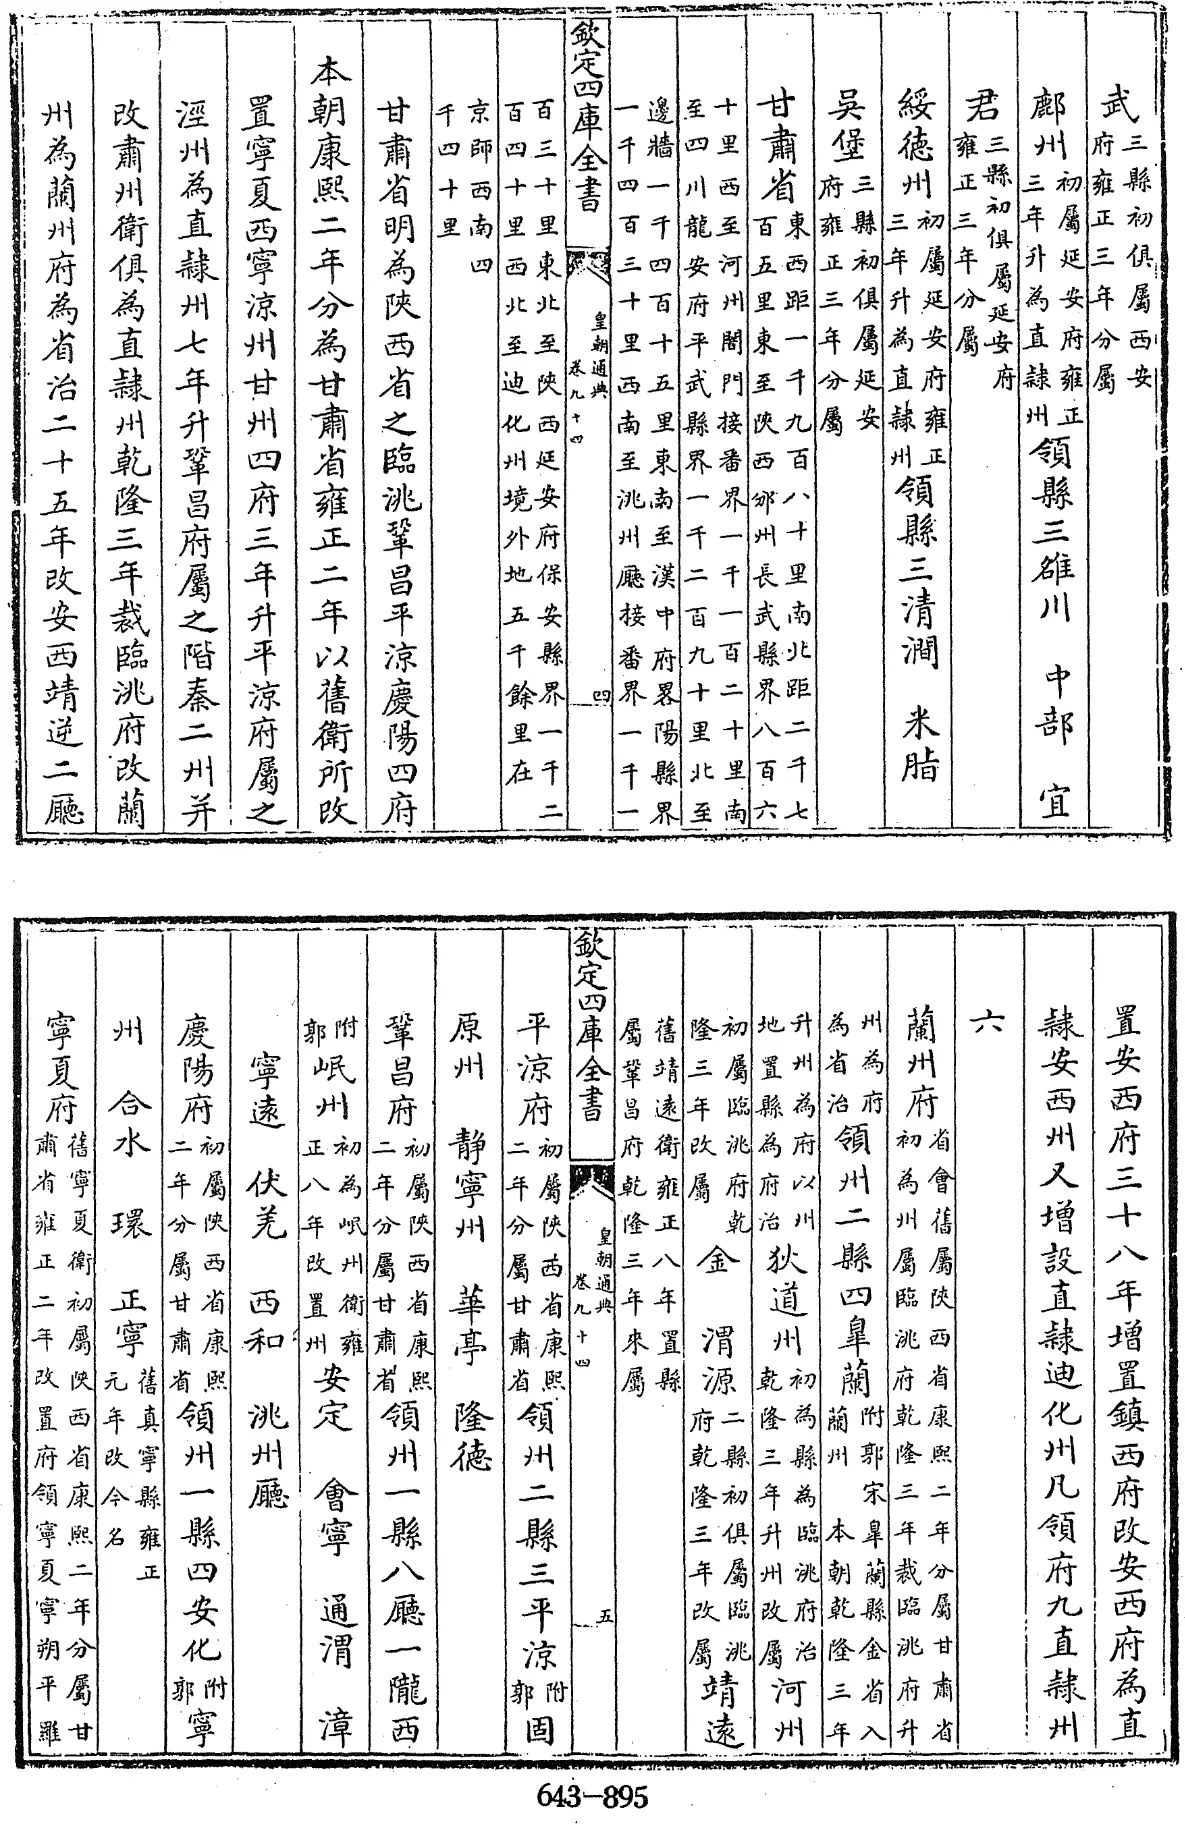 武三縣初俱屬西安府雍正三年分屬
鄜州初屬延安府雍正三年升為直隸州領縣三雒川 中部 宜
君三縣初俱屬延安府雍正三年分屬
綏德州初屬延安府雍正三年升為直隸州領縣三清澗 米脂
吳堡三縣初俱屬延安府雍正三年分屬
甘肅省東西距一千九百八十里南北距二千七百五里東至陜西邠州長武縣界八百六
十里西至河州閤門接番界一千一百二十里南至四川龍安府平武縣界一千二百九十里北至
邊牆一千四百十五里東南至漢中府畧陽縣界一千四百三十里西南至洮州廳接番界一千一
欽定四庫全書 皇朝通典 卷九十四 四
百三十里東北至陜西延安府保安縣界一千二百四十里西北至迪化州境外地五千餘里在
京師西南四千四十里
甘肅省明為陜西省之臨洮鞏昌平涼慶陽四府
本朝康熙二年分為甘肅省雍正二年以舊衛所改
置寧夏西寧涼州甘州四府三年升平涼府屬之
涇州為直隸州七年升鞏昌府屬之階秦二州并
改肅州衛俱為直隸州乾隆三年裁臨洮府改蘭
州為蘭州府為省治二十五年改安西靖逆二廳
置安西府三十八年增置鎮西府改安西府為直
隸安西州又增設直隸迪化州凡領府九直隸州
六
蘭州府省會舊屬陜西省康熙二年分屬甘肅省初為州屬臨洮府乾隆三年裁臨洮府升
州為府為省治領州二縣四臯蘭附郭宋臯蘭縣金省入蘭州 本朝乾隆三年
升州為府以州地置縣為府治狄道州初為縣為臨洮府治乾隆三年升州改屬河州
初屬臨洮府乾隆三年改屬金 渭源二縣初俱屬臨洮府乾隆三年改屬靖遠
舊靖遠衛雍正八年置縣屬鞏昌府乾隆三年來屬
欽定四庫全書 皇朝通典 卷九十四 五
平涼府初屬陜西省康熙二年分屬甘肅省領州二縣三平涼附郭固
原州 靜寧州 華亭 隆德
鞏昌府初屬陜西省康熙二年分屬甘肅省領州一縣八廳一隴西
附郭岷州初為岷州衛雍正八年改置州安定 會寧 通渭 漳
寧遠 伏羌 西和 洮州廳
慶陽府初屬陜西省康熙二年分屬甘肅省領州一縣四安化附郭寧
州 合水 環 正寧舊真寧縣雍正元年改今名
寧夏府舊寧夏衛初屬陜西省康熙二年分屬甘肅省雍正二年改置府領寧夏寧朔平羅
643-895